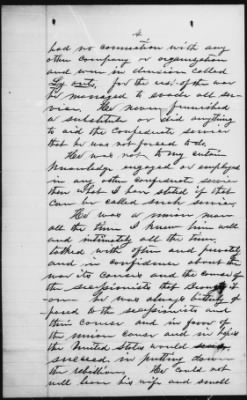 4
had no connection with any
other company or organization
and were in division called
for the rest of the war
he managed to avoid all ser-
vice. He never furnished
a substitute or did anything
to aid the Confederate service
that he was not forced to do.
He was not to my certain
knowledge engaged or employed
in any other Confederate service
than what I have stated if that
can be called such service.
He was a union man
all the time I knew him well
and intimately all the time,
talked with often and
and in confidence about the
war its causes and the course of
the secessionists that brought it
on. he was always bitterly op
posed to the secessionists and
their course and in favor of
the union cause and in hopes
the United States would
succeed in putting down
the rebellion. He could not
well leave his wife and small